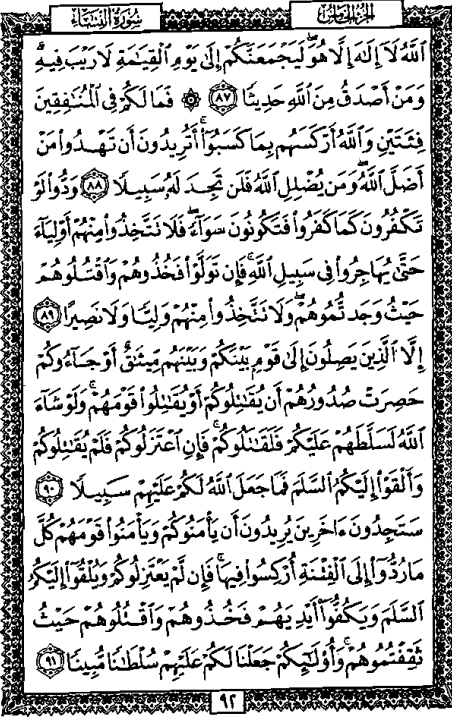 الجزء الخامس
سورة النساء
الله لا إله إلا هو ليجمعنكم إلى يوم القيامة لا ريب فيه
ومن أصدق من الله حديثا ٨٧ ۞ فما لكم في المنافقين
فئتين والله أركسهم بما كسبوا أتريدون أن تهدوا من
أضل الله ومن يضلل الله فلن تجد له سبيلا ٨٨ ودوا لو
تكفرون كما كفروا فتكونون سواء فلا تتخذوا منهم أولياء
حتى يهاجروا في سبيل الله فإن تولوا فخذوهم واقتلوهم
حيث وجدتموهم ولا تتخذوا منهم وليا ولا نصيرا ٨٩
إلا الذين يصلون إلى قوم بينكم وبينهم ميثاق أو جاءوكم
حصرت صدورهم أن يقاتلوكم أو يقاتلوا قومهم ولو شاء
الله لسلطهم عليكم فلقاتلوكم فإن اعتزلوكم فلم يقاتلوكم
وألقوا إليكم السلم فما جعل الله لكم عليهم سبيلا ٩٠
ستجدون ءاخرين يريدون أن يأمنوكم ويأمنوا قومهم كل
ما ردوا إلى الفتنة أركسوا فيها فإن لم يعتزلوكم ويلقوا إليكم
السلم ويكفوا أيديهم فخذوهم واقتلوهم حيث
ثقفتموهم وأولئكم جعلنا لكم عليهم سلطانا مبينا ٩١
٩٢